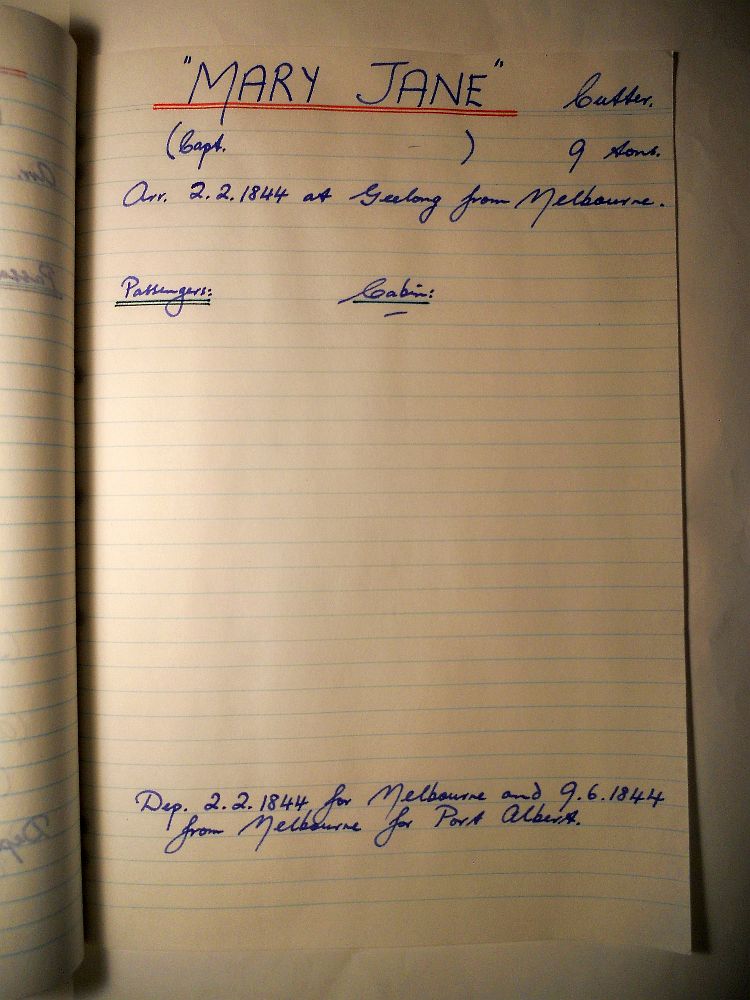 "MARY JANE" Cutter.
(Capt. - ) 9 tons.
Arr. 2.2.1844 at Geelong from Melbourne.
Passengers: Cabin:
Dep. 2.2.1844 for Melbourne and 9.6.1844
from Melbourne for Port Albert.